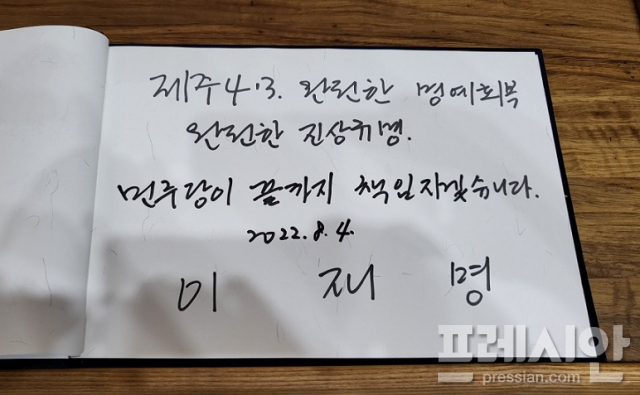 제주4·3. 완전한 명예회복
완전한 진상규명.
민주당이 끝까지 책임지겠습니다.
2022.8.4.
이 재 명
프레시안
pressian.com